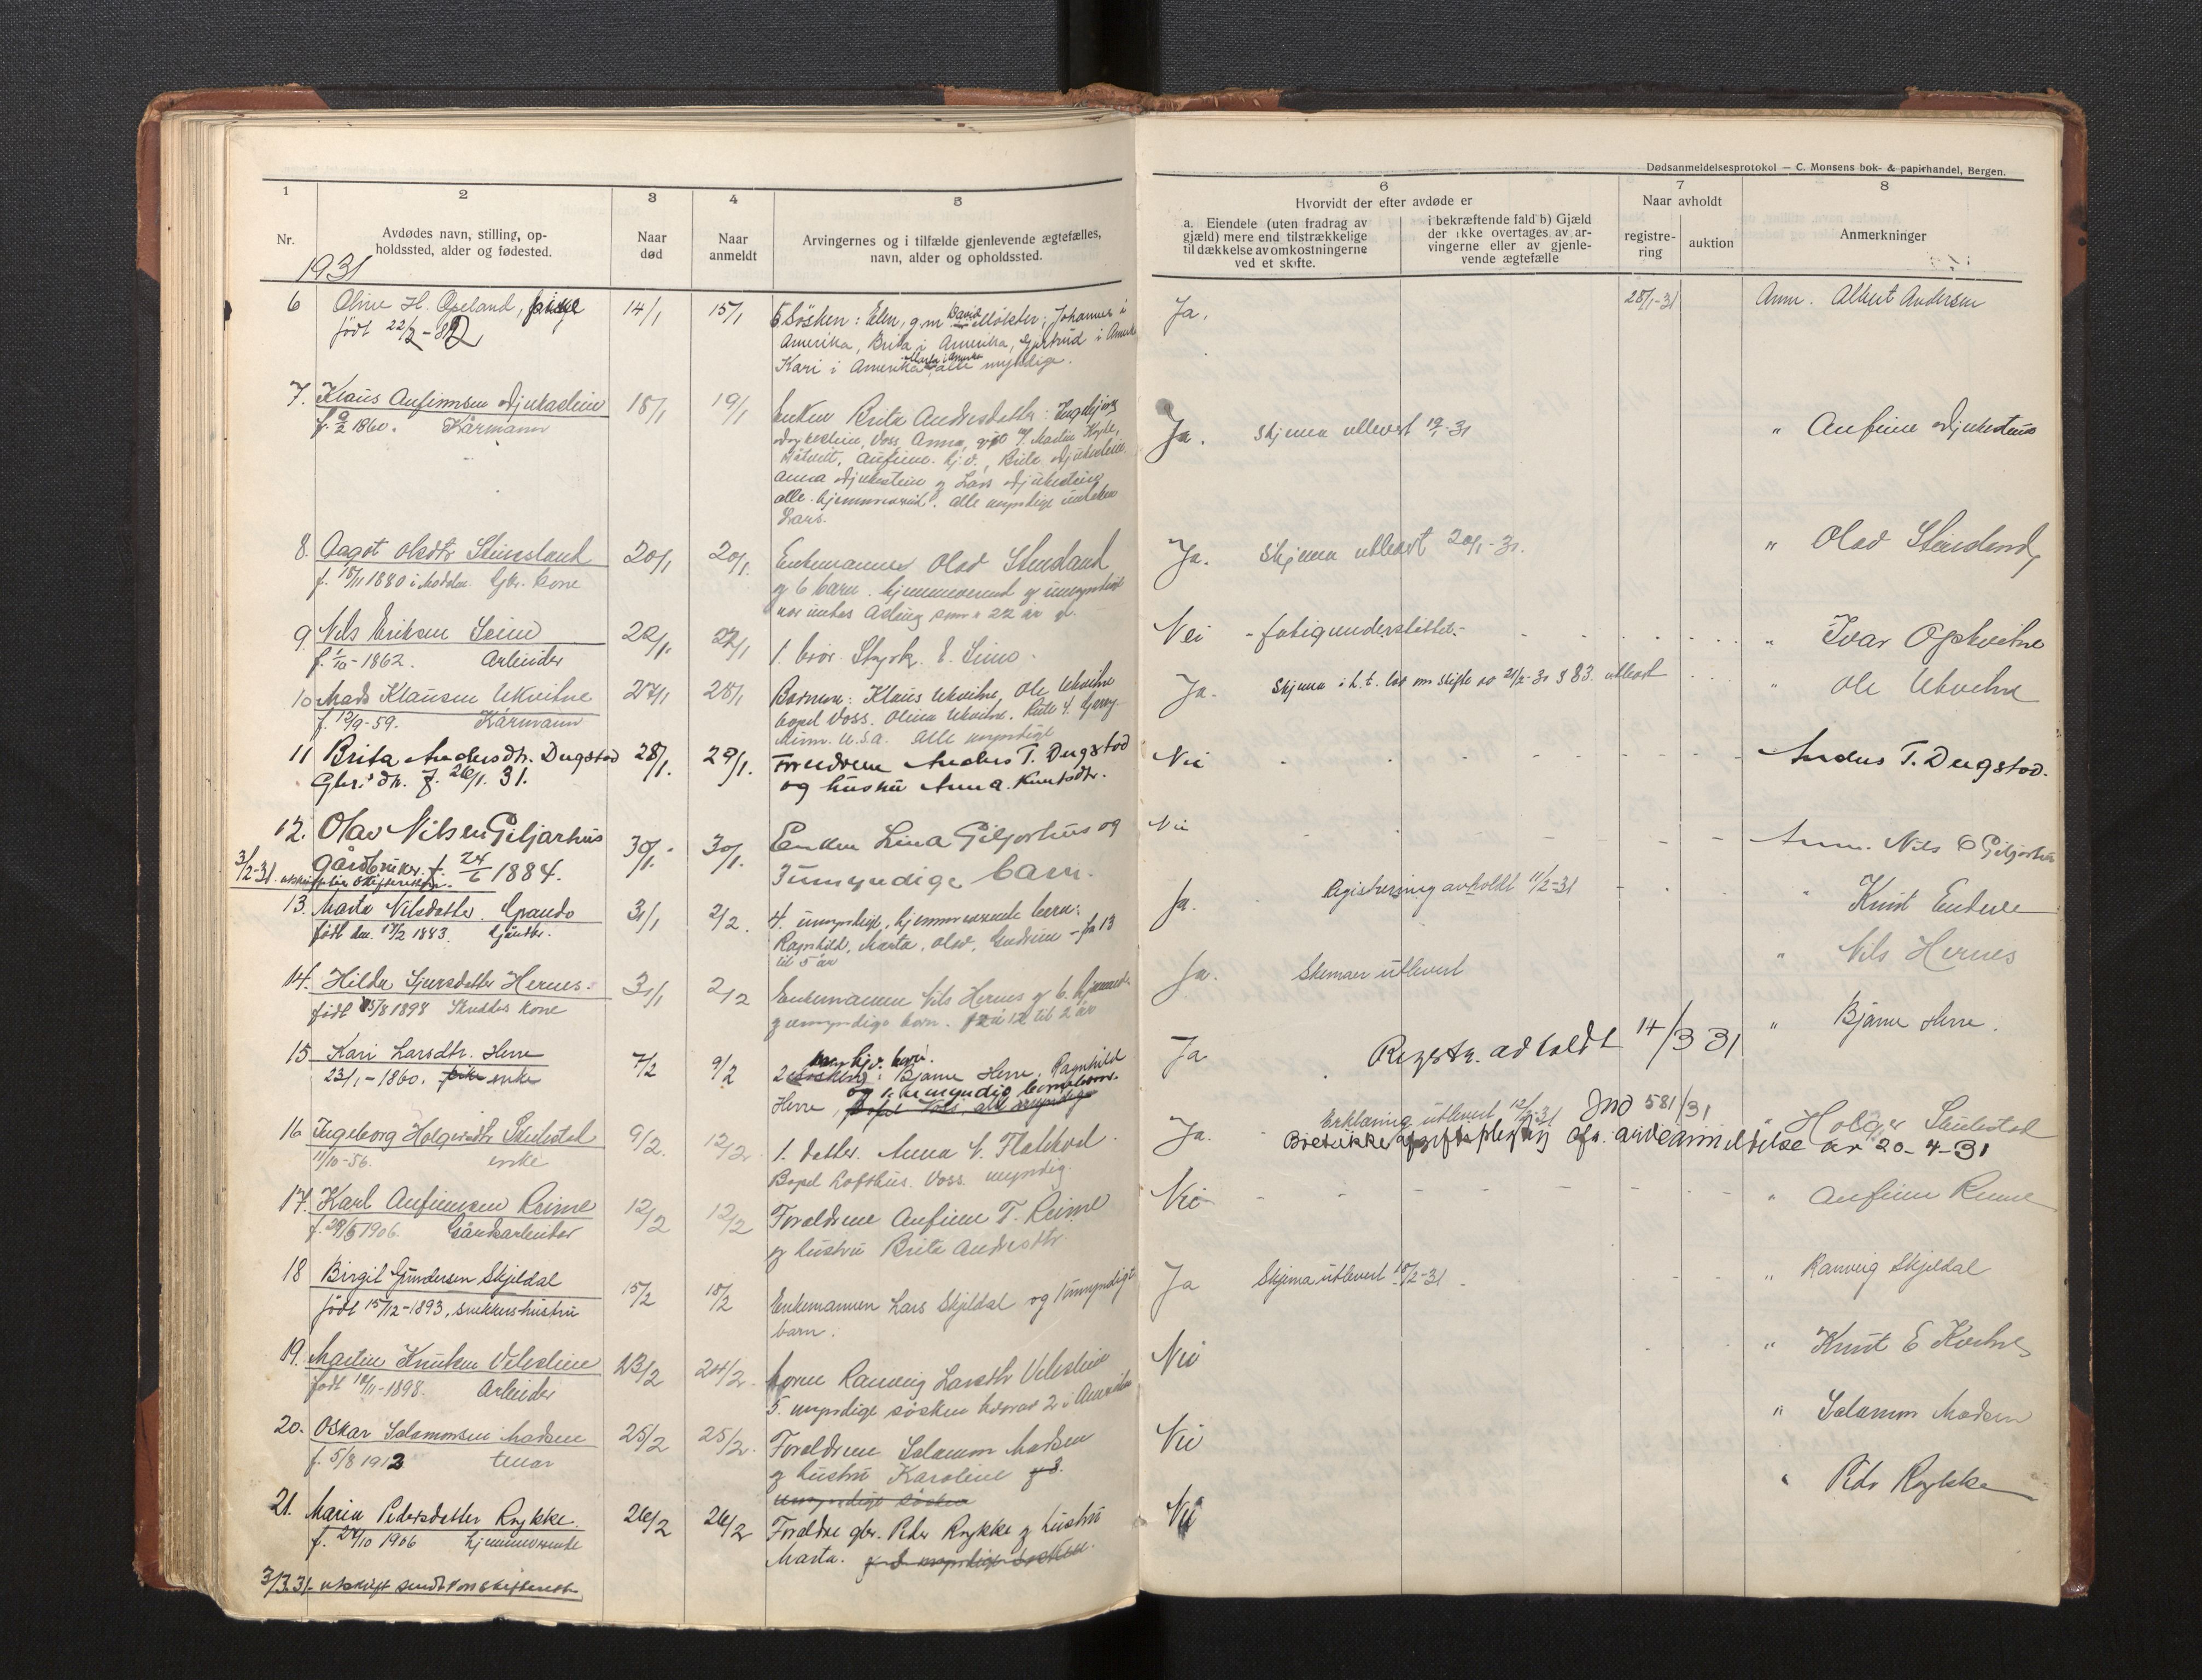 Dødsanmeldelsesprotokol — C. Monsens bok- & papirhandel, Bergen.
1 2 3 4 5
Nr.
Avdødes navn, stilling, op-
holdssted, alder og fødested.
Naar
død
Naar
anmeldt
Arvingernes og i tilfælde gjenlevende ægtefælles,
navn, alder og opholdssted.
6 7 8
Hvorvidt der efter avdøde er
a. Eiendele (uten fradrag av
gjæld) mere end tilstrækkelige
til dækkelse av omkostningerne
ved et skifte.
i bekræftende fald b) Gjæld
der ikke overtages av ar-
vingerne eller av gjenle-
vende ægtefælle
Naar avholdt
registre-
ring
auktion
Anmerkninger
1931
6 Oline H. Opeland, pike 14/1 15/1
født 22/2-82
5 Søsken: Elen, g.m. David Mølster, Johannes i
Amerika, Brita i Amerika, Gjertrud i Amerik
Kari i Amerika, alle myndige.
Ja. 28/1-31 Anm. Albert Andersen
7. Klaus Anfinnsen 18/1 19/1
f. 9/2 1860. Kårmann
Enken Brita Andersdatter: Ingebjørg
Voss, Anna, Martin
Anfinn. hj.v., Brita
Anna og Lars
alle hjemmeværende. Alle myndige undtaken
Lars.
Ja. Skjema utlevert 19/1-31 " Anfinn
8. Aagot Olsdtr Steinsland 20/1 20/1.
f. 18/11 1880 i Gbr. kone
Enkemannen Olav Steinsland
og 6 barn. hjemmeværend og umyndige
når untas Aslaug som er 22 år gl.
Ja. Skjema utlevert 20/1-31. " Olav Steinsland
9. Nils Eriksen Seim 22/1. 27/1
f. 1/10-1862. Arbeider
1. bror. Styrk. E. Seim.
Nei - fatigunderstøttet. - " Ivar Opkvitne
10 Mads Klausen Ukvitne 27/1 28/1
f. 12/9-59. Kårmann
Barnene: Klaus Ukvitne, Ole Ukvitne
bopel Voss. Olina Ukvitne. Rute 4.
Minn. U.S.A. Alle myndige
Ja. Skjema i h.t. lov om skifte av 21/2-30 § 83. utlevert " Ole Ukvitne
11 Brita Andersdtr. Dugstad 28/1. 29/1.
Gbr.s dtr. f. 26/1. 31.
Foreldrene Anders T. Dugstad
og hustru Anna Knutsdtr.
Nei Anders T. Dugstad.
12. Olav Nilsen Giljarhus 30/1. 30/1.
Gårdbruker. f. 24/6 1884.
3/2-31.
Enken Lina Giljarhus og
3 umyndige barn.
Nei Anm. Nils O Giljarhus
13. Marta Nilsdatter. Grando 31/1 2/2.
født den. 17/2 1883.
4. umyndige, hjemmeværende barn:
Ragnhild, Marta, Olav, Gudrun - fra 13
til 5 år
Ja. Registrering avholdt 11/2-31 " Knut
14. Hilda Sjursdatter Hernes. 31/1 2/2
født 15/8 1898 kone
Enkemannen Nils Hernes og 6. hjemmev.
og umyndige barn. fra 12 til 2 år
Ja. Skemaer utlevert " Nils Hernes
15 Kari Larsdtr. Herre 7/2 9/2
23/1-1860. pike enke
2 søsken: Bjarne Herre, Ragnhild
Herre, bopel Voss, alle myndige
og 1. umyndig
Ja Registr. avholdt 14/3 31 " Bjarne Herre.
16 Ingeborg Holgersdtr Saulestad 9/2. 12/2
11/10-56. enke
1. datter. Anna
Bopel Lofthus. Voss. myndig.
Ja. Erklæring utlevert 12/2-31 Jno 581/31 " Holger Saulestad
Boet ikke avgiftspliktig arveanmeldelse av 20-4-31
17. Karl Anfinnsen Reime 12/2 12/2
f. 29/5 1906. Gårdsarbeider
Foreldrene Anfinn T. Reime
og hustru Brita Andersdtr.
Nei " Anfinn Reime
18 Birgit Gundersen Skjeldal 15/2 18/2
født 15/12-1893, snekkershustru
Enkemannen Lars Skjeldal og 1 umyndigt
barn.
Ja Skjema utlevert 18/2-31. " Ranveig Skjeldal
19. Martin Knutsen 23/2 24/2.
født 19/11-1898. Arbeider
Moren Ranveig Larsdtr
5. myndige søsken hvorav 2 i Amerika
Nei " Knut E
20. Oskar Salamonsen Madsen 25/2 25/2.
f. 5/8 1912
Foreldrene Salamon Madsen
og hustru Karoline og 3.
umyndige søsken
Nei " Salamon Madsen
21. Maria Pedersdatter Rykke. 26/2 26/2
f. 24/10 1906 hjemmeværende
Foreldre gbr. Peder Rykke og hustru
Marta. og 8 myndige søsken.
Nei " Peder Rykke
3/3.31. utskrift sendt